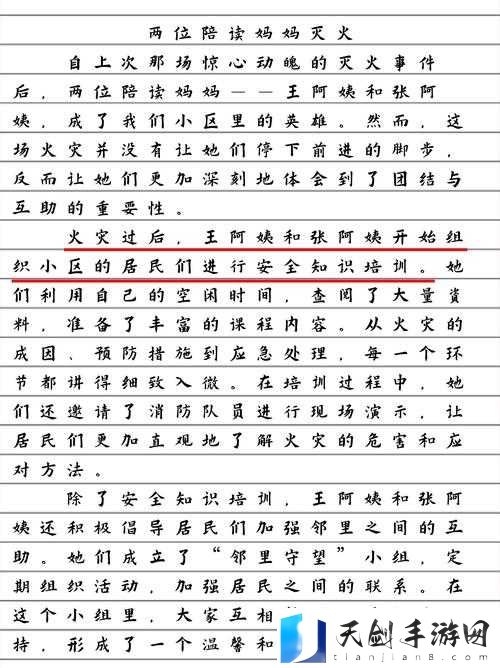 两位陪读妈妈灭火
自上次那场惊心动魄的灭火事件
后，两位陪读妈妈——王阿姨和张阿
姨，成了我们小区里的英雄。然而，这
场火灾并没有让她们停下前进的脚步，
反而让她们更加深刻地体会到了团结与
互助的重要性。
火灾过后，王阿姨和张阿姨开始组
织小区的居民们进行安全知识培训。她
们利用自己的空闲时间，查阅了大量资
料，准备了丰富的课程内容。从火灾的
成因、预防措施到应急处理，每一个环
节都讲得细致入微。在培训过程中，她
们还邀请了消防队员进行现场演示，让
居民们更加直观地了解火灾的危害和应
对方法。
除了安全知识培训，王阿姨和张阿
姨还积极倡导居民们加强邻里之间的互
助。她们成立了“邻里守望”小组，定
期组织活动，加强居民之间的联系。在
这个小组里，大家互相
持，形成了一个温馨和
天剑手游网
tianjian8.com